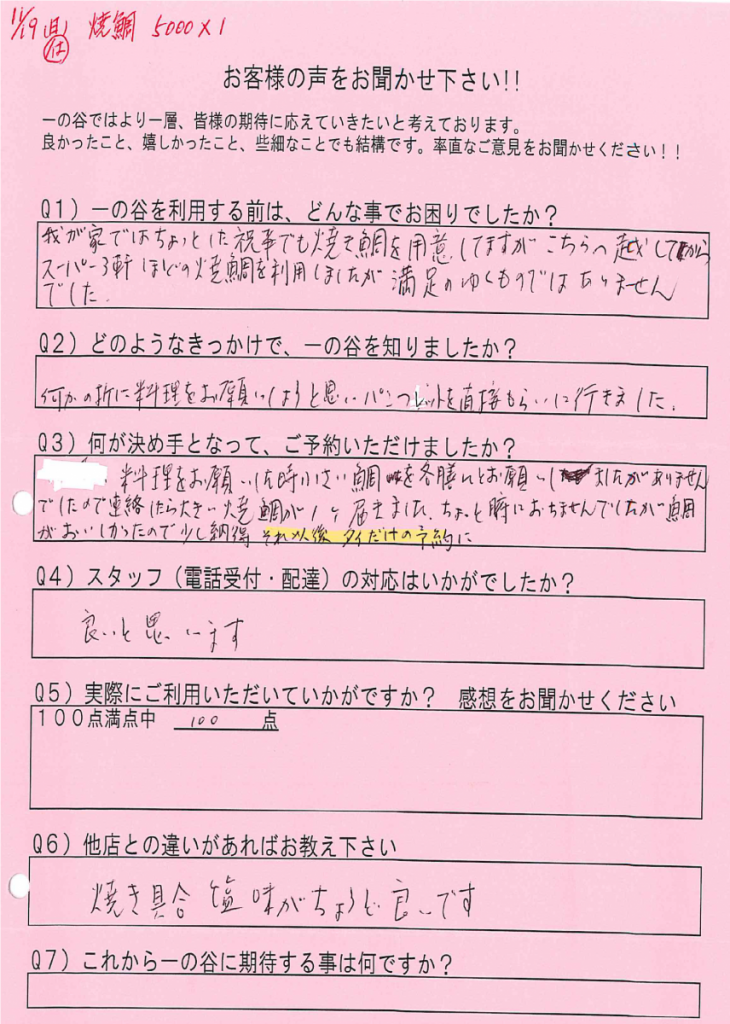 11/19 焼鯛 5000×1
お客様の声をお聞かせ下さい!!
一の谷ではより一層、皆様の期待に応えていきたいと考えております。
良かったこと、嬉しかったこと、些細なことでも結構です。率直なご意見をお聞かせください！！
Q1）一の谷を利用する前は、どんな事でお困りでしたか？
我が家ではちょっとした祝事でも焼き鯛を用意してますがこちらへ越して から
スーパー3軒ほどの焼鯛を利用しましたが満足のゆくものではありません
でした．
Q2）どのようなきっかけで、一の谷を知りましたか？
何かの折に料理をお願いしようと思いパンフレットを直接もらいに行きました．
Q3）何が決め手となって、ご予約いただけましたか？
料理をお願いした時小さい鯛を各膳にとお願いし ましたがありません
でしたので連絡したら大きい焼鯛が1ヶ届きました、ちょっと腑におちませんでしたが鯛
がおいしかったので少し納得 それ以後タイだけの予約に
Q4）スタッフ（電話受付・配達）の対応はいかがでしたか？
良いと思います
Q5）実際にご利用いただいていかがですか？ 感想をお聞かせください
１００点満点中 100 点
Q6）他店との違いがあればお教え下さい
焼き具合 塩味がちょうど良いです
Q7）これから一の谷に期待する事は何ですか？